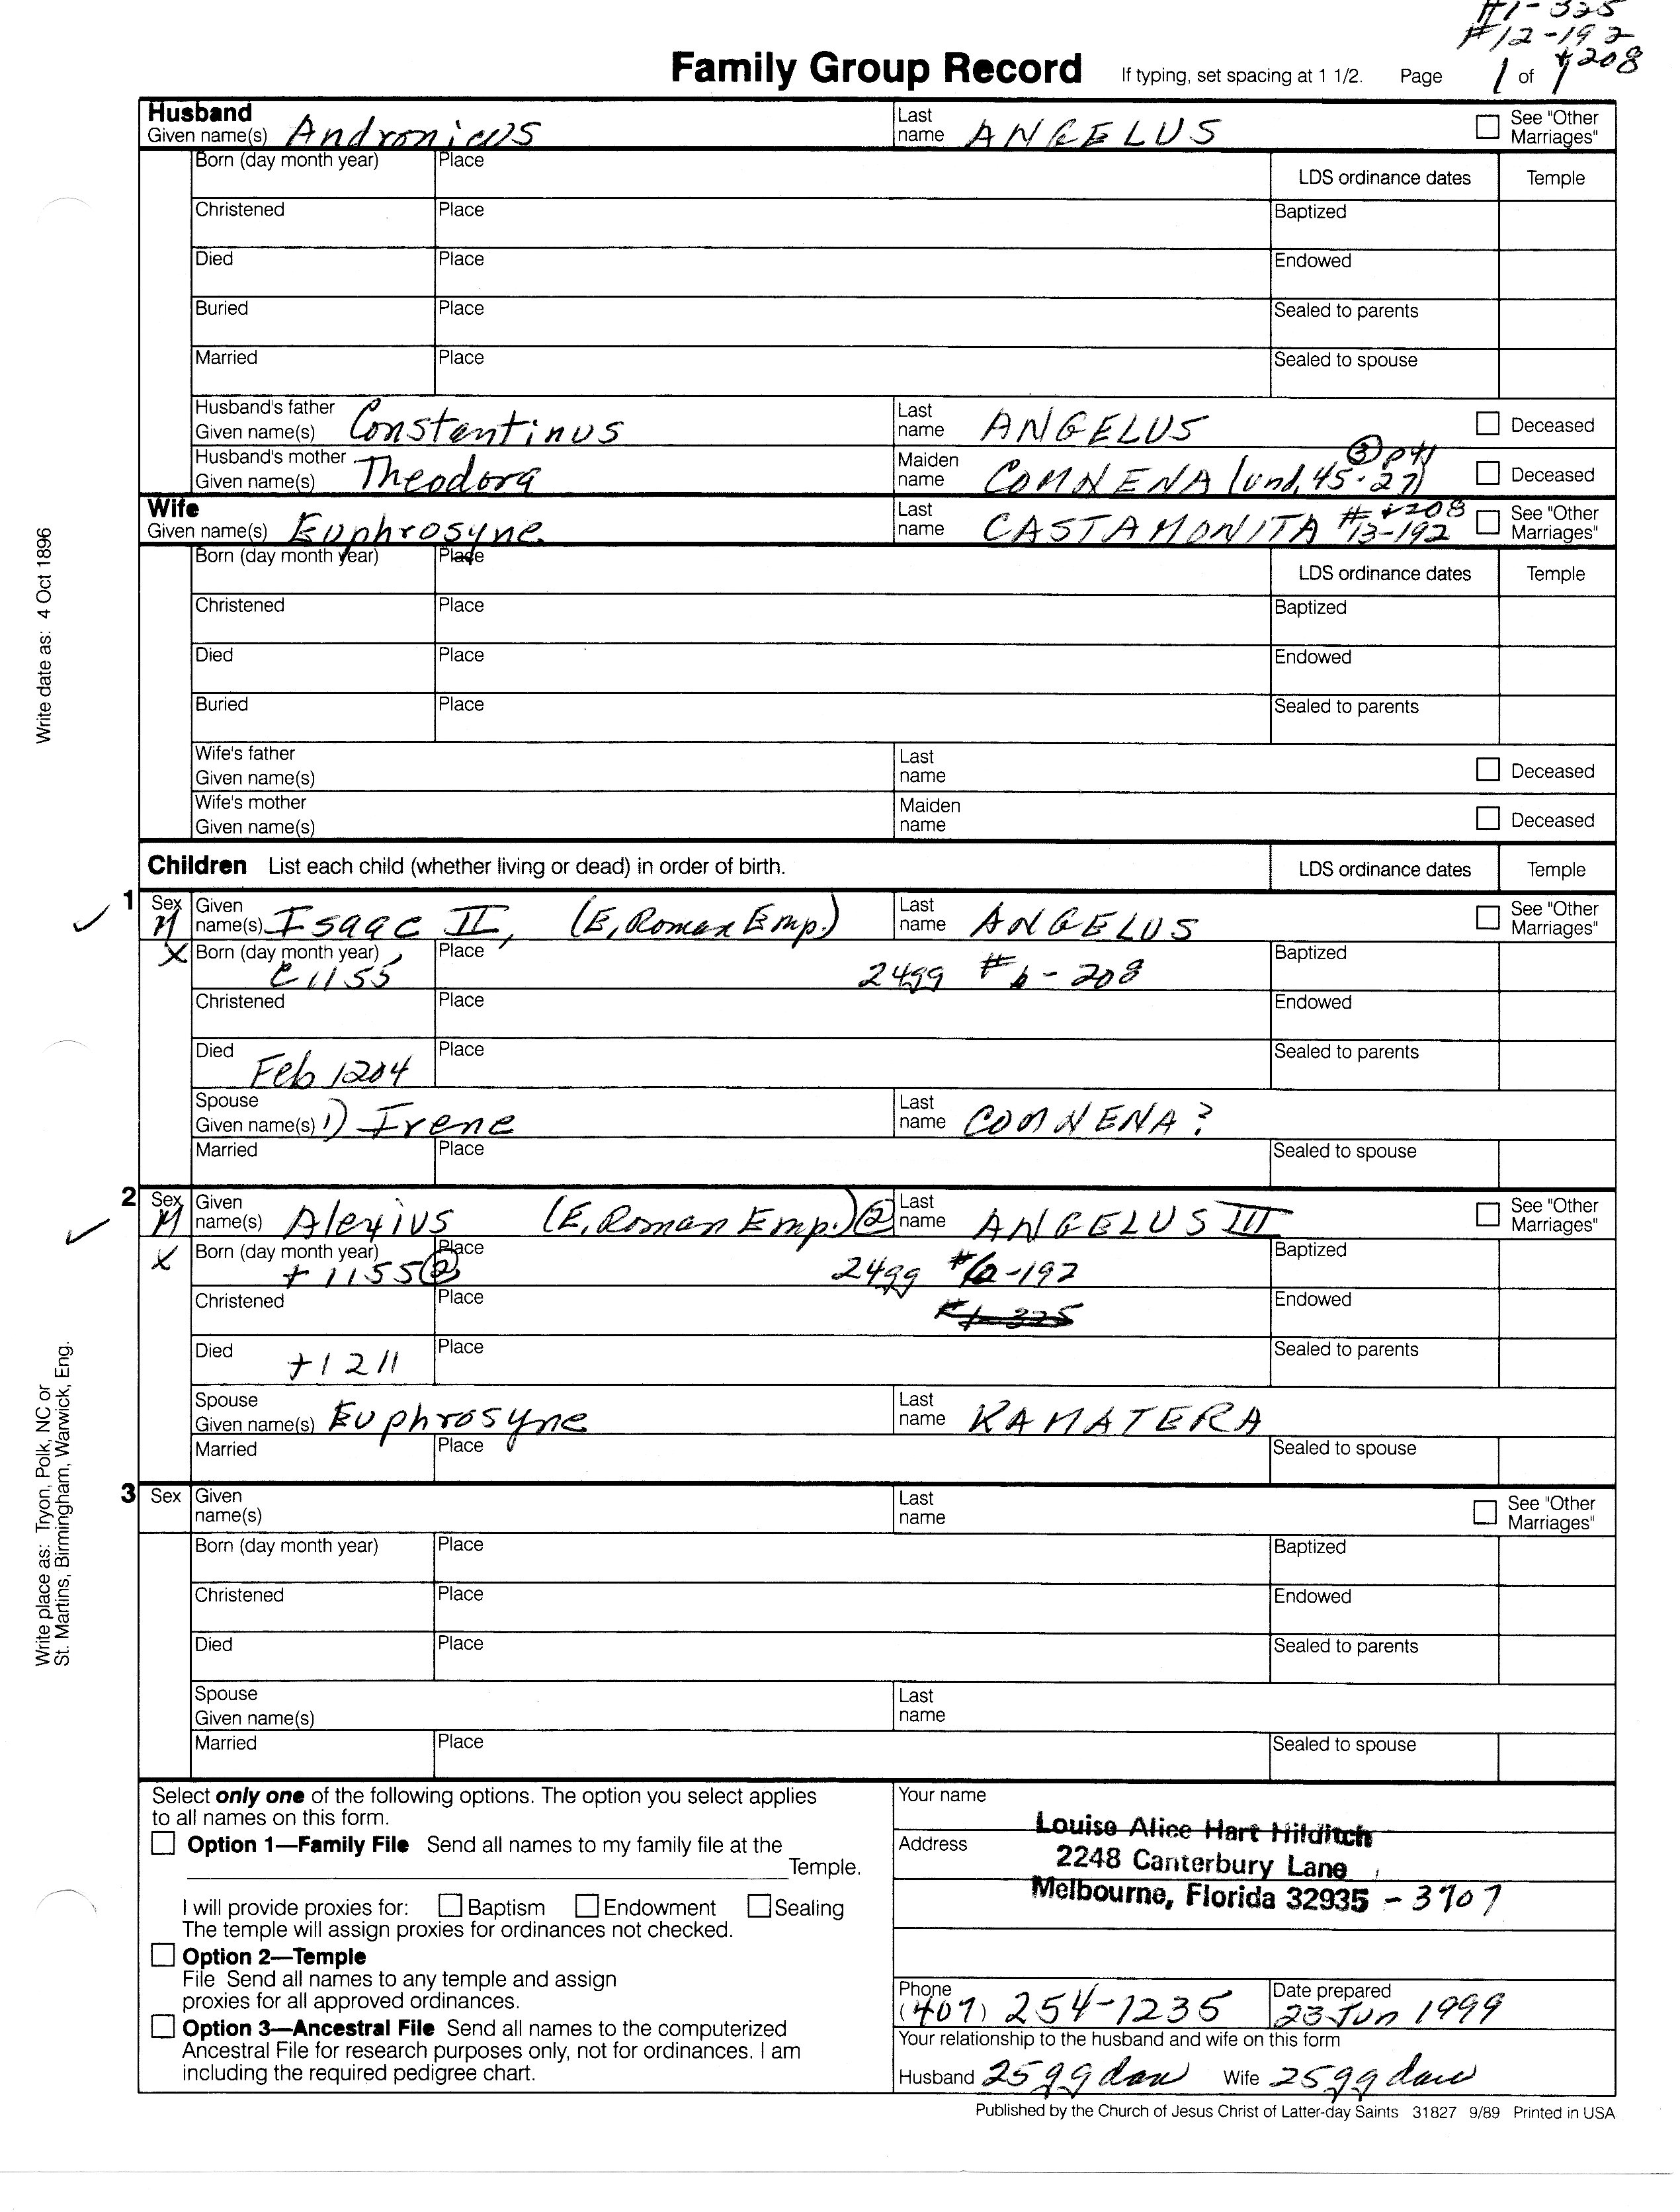 #1-325
#12-192
+208
Family Group Record If typing, set spacing at 1 1/2. Page 1 of 1
Husband
Given name(s) Andronicus Last name ANGELUS See "Other Marriages"
Born (day month year) Place LDS ordinance dates Temple
Christened Place Baptized
Died Place Endowed
Buried Place Sealed to parents
Married Place Sealed to spouse
Husband's father Given name(s) Constantinus Last name ANGELUS Deceased
Husband's mother Given name(s) Theodora Maiden name COMNENA (und, 45-27) ③ p41 Deceased
Wife
Given name(s) Euphrosyne Last name CASTAMONITA #13-192 +208 See "Other Marriages"
Born (day month year) Place LDS ordinance dates Temple
Christened Place Baptized
Died Place Endowed
Buried Place Sealed to parents
Wife's father Given name(s) Last name Deceased
Wife's mother Given name(s) Maiden name Deceased
Children List each child (whether living or dead) in order of birth. LDS ordinance dates Temple
1 Sex M Given name(s) Isaac II, (E, Roman Emp.) Last name ANGELUS See "Other Marriages"
X Born (day month year) C1155 Place 24gg #6-208 Baptized
Christened Place Endowed
Died Feb 1204 Place Sealed to parents
Spouse Given name(s) 1) Irene Last name COMNENA?
Married Place Sealed to spouse
2 Sex M Given name(s) Alexius (E, Roman Emp.) ② Last name ANGELUS III See "Other Marriages"
X Born (day month year) +1155 ② Place 24gg #12-192 Baptized
Christened Place #1-325 Endowed
Died +1211 Place Sealed to parents
Spouse Given name(s) Euphrosyne Last name KAMATERA
Married Place Sealed to spouse
3 Sex Given name(s) Last name See "Other Marriages"
Born (day month year) Place Baptized
Christened Place Endowed
Died Place Sealed to parents
Spouse Given name(s) Last name
Married Place Sealed to spouse
Select only one of the following options. The option you select applies
to all names on this form.
Option 1—Family File Send all names to my family file at the
Temple.
I will provide proxies for: Baptism Endowment Sealing
The temple will assign proxies for ordinances not checked.
Option 2—Temple
File Send all names to any temple and assign
proxies for all approved ordinances.
Option 3—Ancestral File Send all names to the computerized
Ancestral File for research purposes only, not for ordinances. I am
including the required pedigree chart.
Your name
Louise Alice Hart Hilditch
Address
2248 Canterbury Lane
Melbourne, Florida 32935 - 3707
Phone (407) 254-1235 Date prepared 23 Jun 1999
Your relationship to the husband and wife on this form
Husband 25ggdau Wife 25ggdau
Published by the Church of Jesus Christ of Latter-day Saints 31827 9/89 Printed in USA
Write date as: 4 Oct 1896
Write place as: Tryon, Polk, NC or
St. Martins, Birmingham, Warwick, Eng.